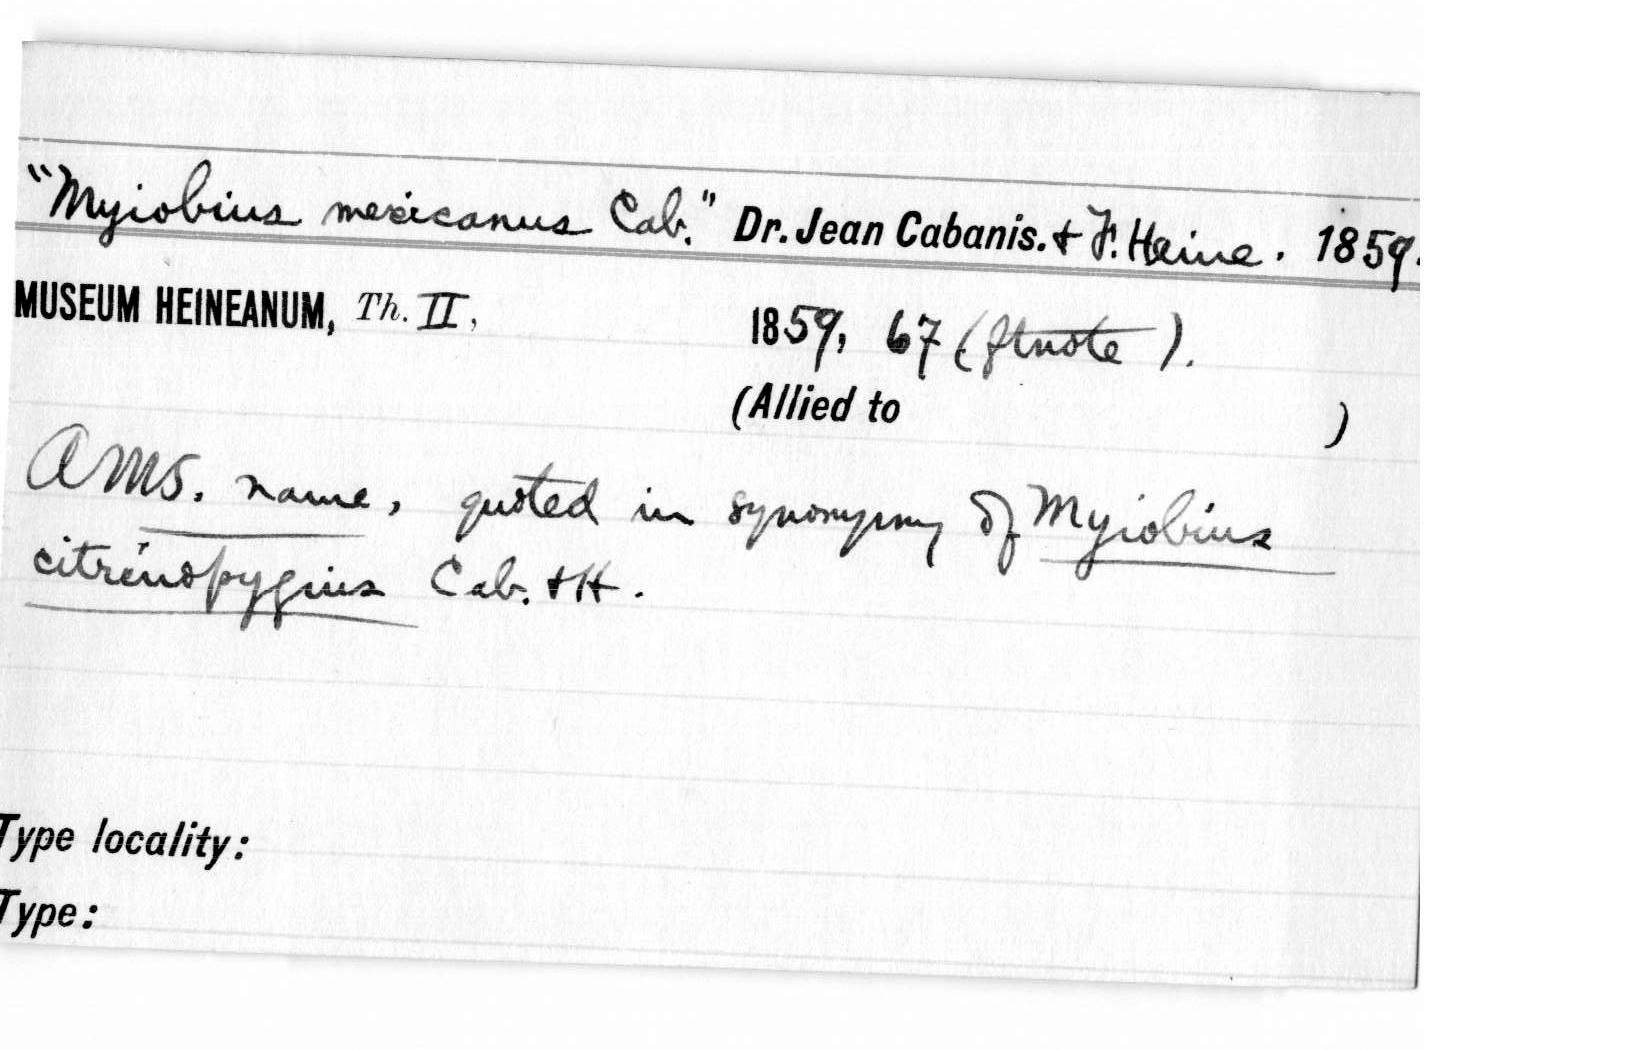 "Myiobius mexicanus Cab." Dr. Jean Cabanis. & F. Heine. 1859.
MUSEUM HEINEANUM, Th. II, 1859, 67 (ftnote).
(Allied to )
A MS. name, quoted in synonymy of Myiobius
citrinopygius Cab. & H.
Type locality:
Type: